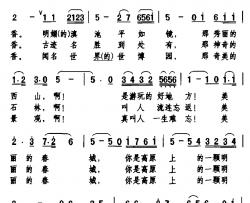 2 - ∨1 1 2123 | 5 - 0 2 6561 | 5 - 0 1 6 1 1
香。 明媚(的)滇 池 平 如 镜, 那 秀丽的
香。 古迹 名 胜 到 处 有, 那 神奇的
香。 闻名 世 界(的)世 博 园, 那 奇美的
1·2 3 0 5 - | 5·0 3 4 3 2 5656 | 5 - 3 0 5
西 山, 啊! 是游玩的 好地 方! 美
石 林, 啊! 叫人 流连忘 返! 美
景 观, 啊! 真叫人 一生难 忘! 美
丽 的 春 城, 你是高原 上 的一颗明
丽 的 春 城, 你是高原 上 的一颗明
丽 的 春 城, 你是高原 上 的一颗明